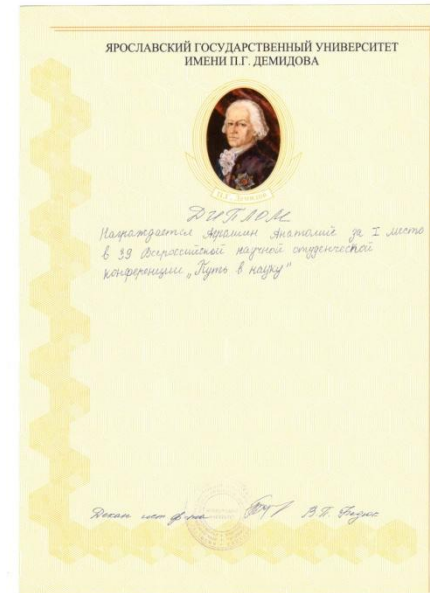 ЯРОСЛАВСКИЙ ГОСУДАРСТВЕННЫЙ УНИВЕРСИТЕТ
ИМЕНИ П.Г. ДЕМИДОВА
ДИПЛОМ
Награждается Анатолий за I место
в 39 Всероссийской научной студенческой
конференции „Путь в науку"
Декан ист ф-та В.П. Федюк